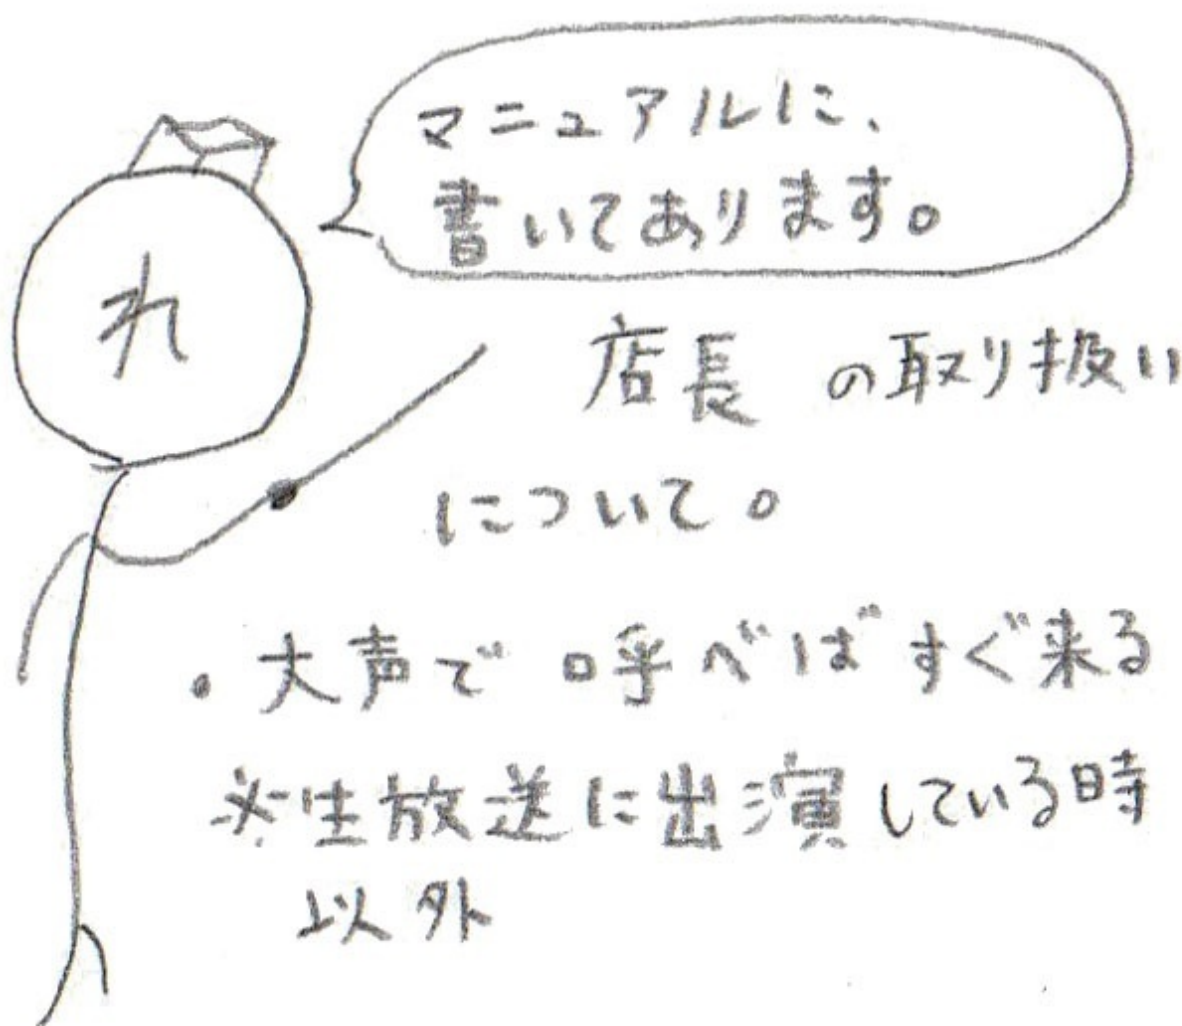 マニュアルに、
書いてあります。
れ
店長の取り扱い
について。
・大声で呼べばすぐ来る
※生放送に出演している時
以外